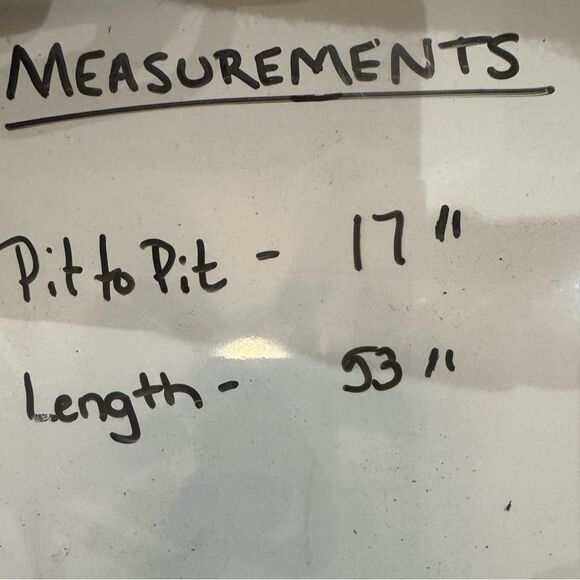 MEASUREMENTS
Pit to Pit - 17"
Length - 53"